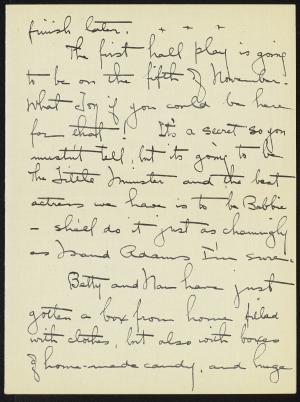 finish later. + + +
The first hall play is going
to be on the fifth of November.
What Joy if you could be here
for that! It's a secret so you
mustn't tell, but its going to be
The Little Minister and the best
actress we have is to be Babbie
- she'll do it just as charmingly
as Maud Adams I'm sure.
Betty and Nan have just
gotten a box from home filled
with clothes, but also with boxes
of home-made candy, and huge